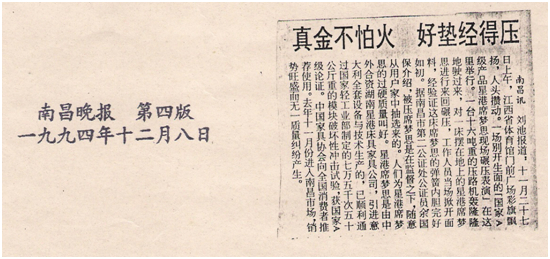 南昌晚报 第四版
一九九四年十二月八日
真金不怕火 好垫经得压
南昌讯 刘池报道,十一月二十七
日上午,江西省体育馆门前广场彩旗飘
扬,人头攒动。一场别开生面的“国家A
级产品星港席梦思现场碾压表演”在这
里举行。一台十六吨重的压路机轰隆隆
地驶过来,对一床摆在地上的星港席梦
思进行来回碾压,工作人员当场掀开面
料,经验证这床席梦思的弹簧内胆完好
如初。据南昌市第二公证处公证员余国
保介绍,被压席梦思是在监督之下,随意
从用户家中抽选来的。人们为星港席梦
思的过硬质量叫好。星港席梦思是由中
外合资湖南星港床具家具公司,引进意
大利全套设备与技术生产的,已顺利通
过国家轻工业部制定的七万五千次五十
公斤重的模块破坏性冲击试验,获国家A
级论证。中国家具协会向全国消费者推
荐使用。去年十一月份进入南昌市场,销
势旺盛而无一质量纠纷产生。